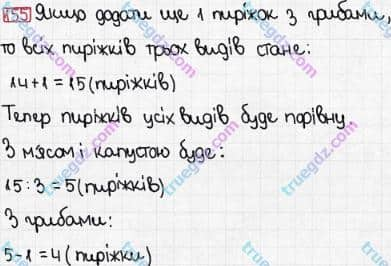 155 Якщо додати ще 1 пиріжок з грибами,
то всіх пиріжків трьох видів стане:
14+1=15(пиріжків)
Тепер пиріжків усіх видів буде порівну.
З м'ясом і капустою буде:
15:3=5(пиріжків)
З грибами:
5-1=4(пиріжки)
truegdz.com
truegdz.com
truegdz.com
truegdz.com